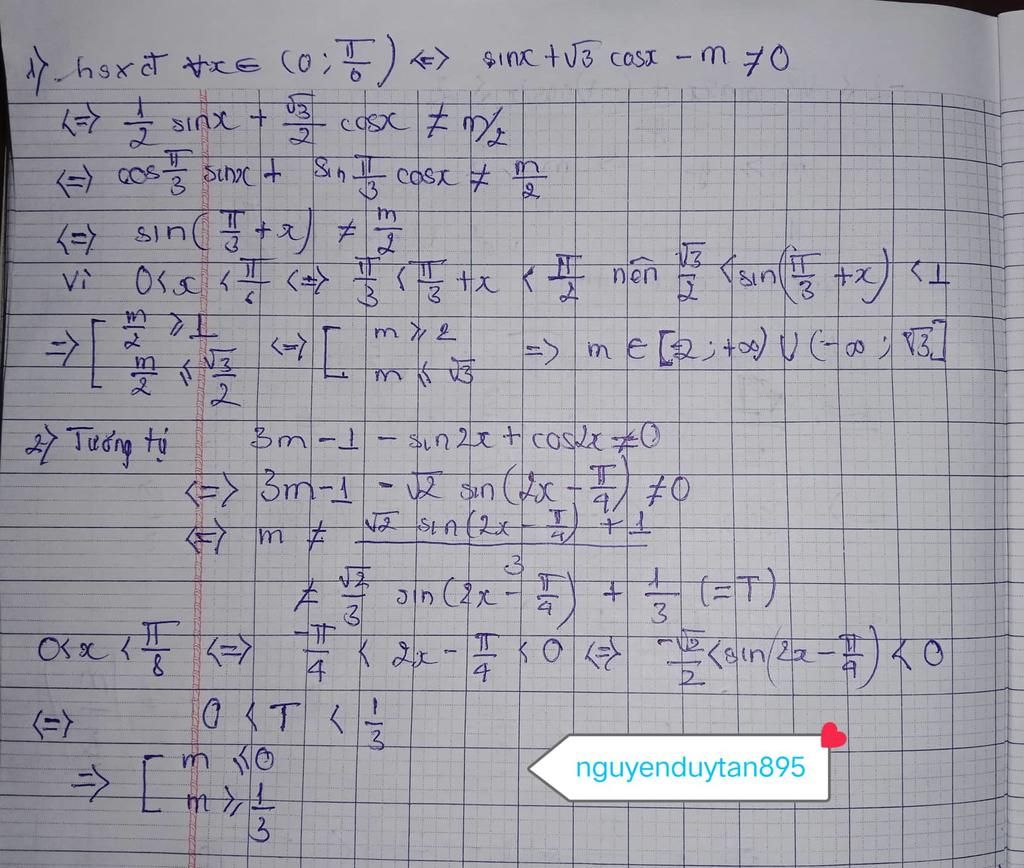 1) hsxđ ∀x∈ (0; π/6) <=> sinx + √3 cosx - m ≠ 0
<=> 1/2 sinx + √3/2 cosx ≠ m/2
<=> cos π/3 sinx + sin π/3 cosx ≠ m/2
<=> sin(π/3 + x) ≠ m/2
Vì 0<x<π/6 <=> π/3 < π/3 + x < π/2 nên √3/2 < sin(π/3 + x) < 1
=> [ m/2 ≥ 1 ; m/2 ≤ √3/2 <=> [ m ≥ 2 ; m ≤ √3 => m ∈ [2; +∞) ∪ (-∞; √3]
2) Tương tự 3m - 1 - sin2x + cos2x ≠ 0
<=> 3m - 1 - √2 sin(2x - π/4) ≠ 0
<=> m ≠ (√2 sin(2x - π/4) + 1)/3
≠ √2/3 sin(2x - π/4) + 1/3 (=T)
0<x<π/8 <=> -π/4 < 2x - π/4 < 0 <=> -√2/2 < sin(2x - π/4) < 0
<=> 0 < T < 1/3
=> [ m ≤ 0 ; m ≥ 1/3
nguyenduytan895